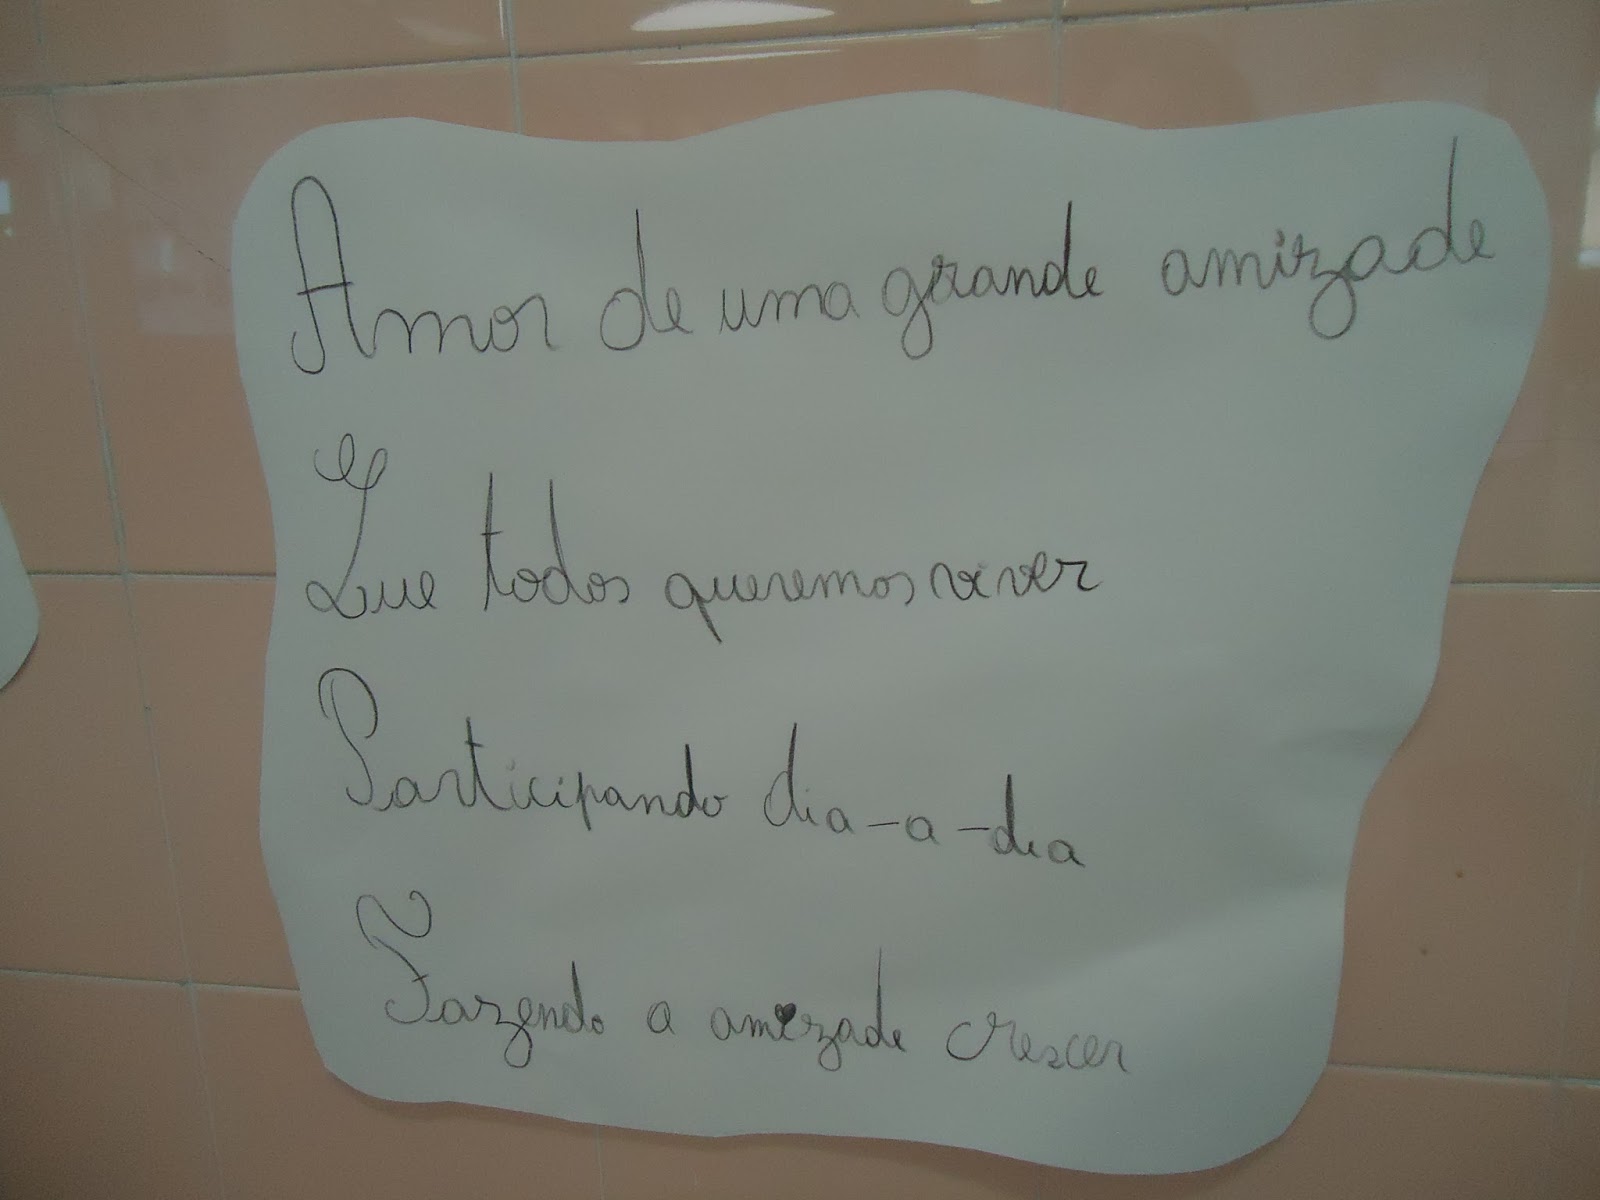 Amor de uma grande amizade
Que todos queremos viver
Participando dia-a-dia
Fazendo a amizade crescer